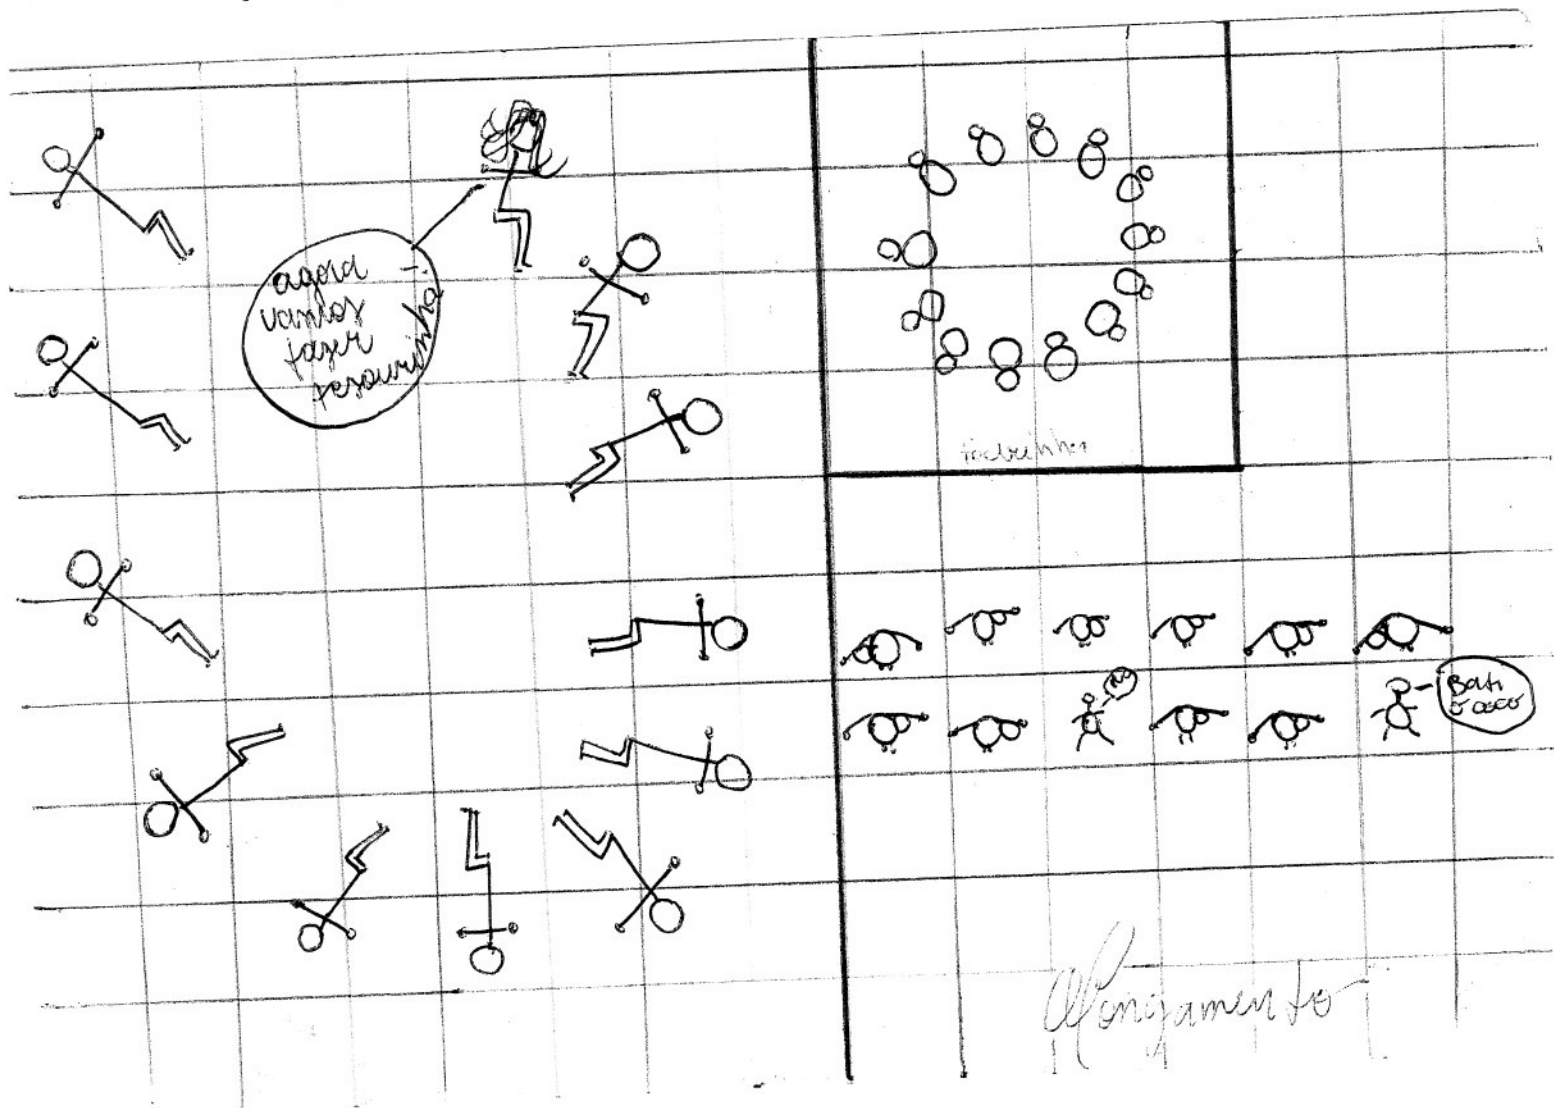 agora
vamos
fazer
tesourinha!
Bati
o coco
Alongamento